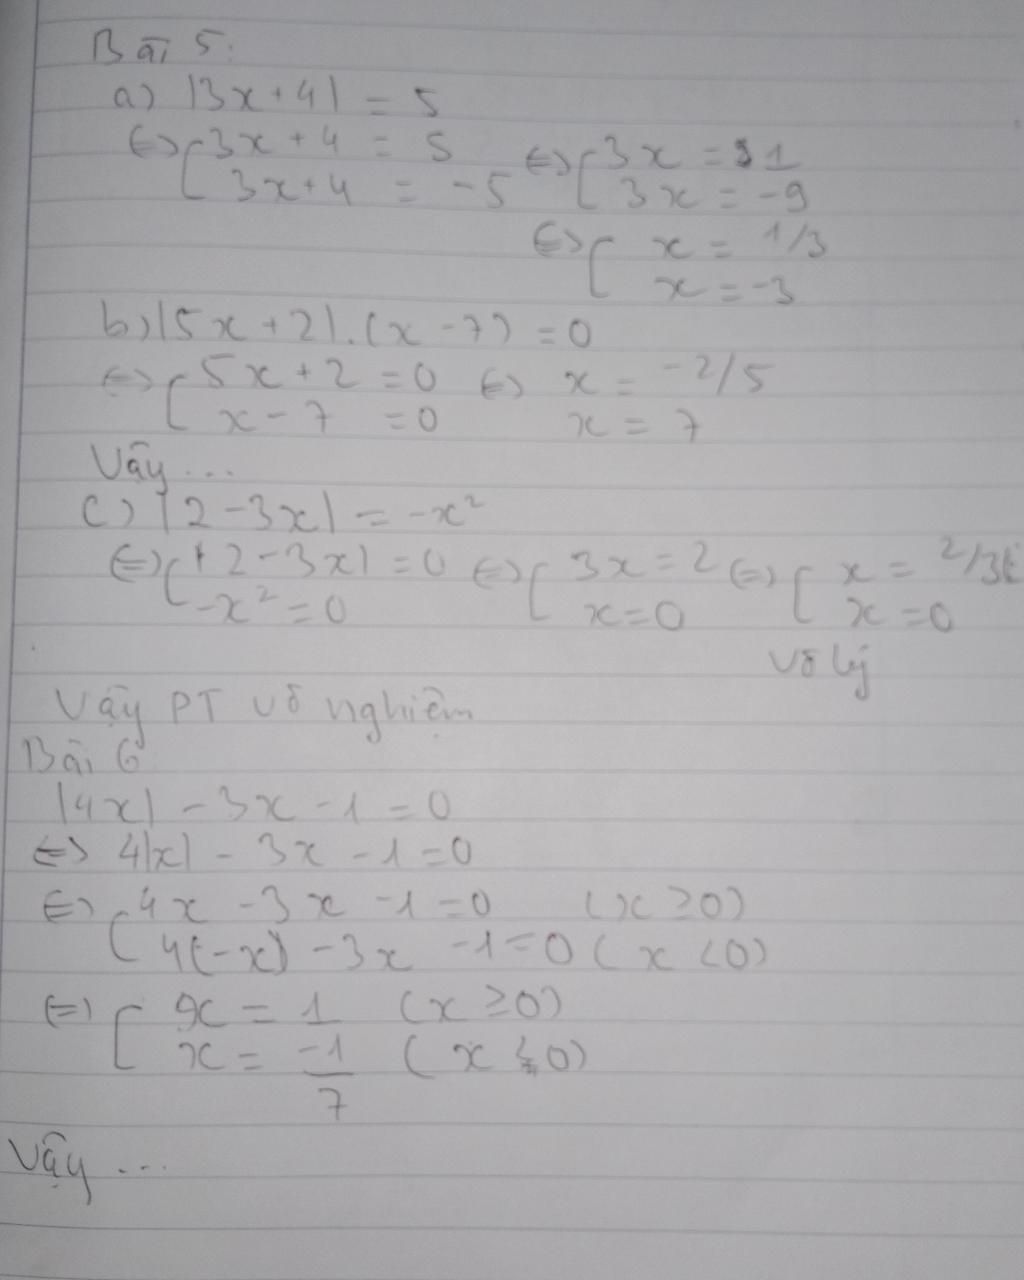 Bài 5:
a) |3x+4| = 5
⇔ [ 3x+4 = 5 ⇔ [ 3x = 1
3x+4 = -5 3x = -9
⇔ [ x = 1/3
x = -3
b) |5x+2|.(x-7) = 0
⇔ [ 5x+2 = 0 ⇔ x = -2/5
x-7 = 0 x = 7
Vậy ...
c) |2-3x| = -x²
⇔ [ |2-3x| = 0 ⇔ [ 3x = 2 ⇔ [ x = 2/3
-x² = 0 x = 0 x = 0
vô lý
Vậy PT vô nghiệm
Bài 6
|4x| - 3x - 1 = 0
⇔ 4|x| - 3x - 1 = 0
⇔ [ 4x - 3x - 1 = 0 (x ≥ 0)
4(-x) - 3x - 1 = 0 (x < 0)
⇔ [ x = 1 (x ≥ 0)
x = -1/7 (x < 0)
Vậy ...